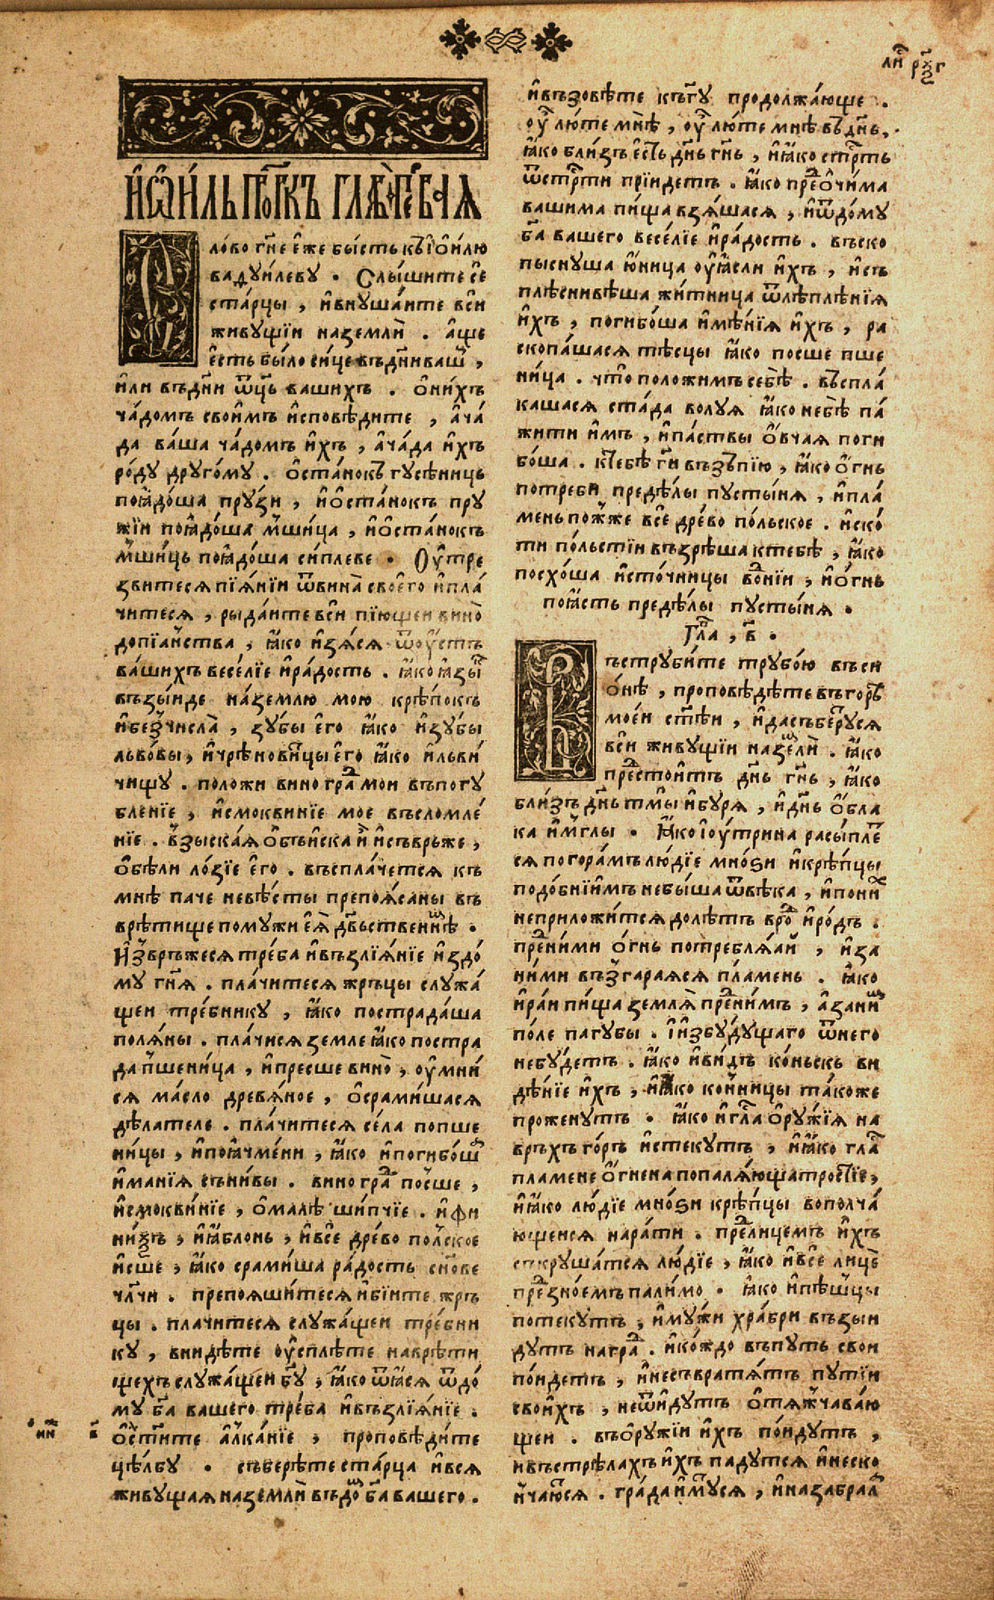 ли҇ рч҃г
І҆ѡи҃ль прⷪ҇ркъ глава̀ первая
Сло́во гн҇е е҆́же бы́сть къ і҆о́и҆лю
вадꙋи́левꙋ . Слы́шите сѐ
ста́рцы , и҆внꙋша́ите всѝ
живꙋщїи наземлѝ . а҆ще
е҆сть бы́ло си́це въдн҃и ваш҇ ,
и҆ли въдн҃и ѿц҃ь вашихъ . о҆ни́хъ
ча́домъ свои́мъ и҆сповѣ́дите , а҆ча́
да ва́ша ча́домъ и҆́хъ , а҆ча́да и҆́хъ
ро́дꙋ дрꙋго́мꙋ . о҆ста́нокъ гꙋсѣ́ниць
поꙗ҆до́ша прꙋ́зи , и҆о҆ста́нокъ прꙋ
жїи поꙗ҆до́ша мш҃ица , и҆о҆ста́нокъ
мш҃иць поꙗ҆до́ша си́плеве . Оу҆тре
звитеся пїя́нїи ѿвина̀ своего̀ и҆пла́
читеся , рыда́ите всѝ пїющеи вино̀
допїа́нства , ꙗ҆́ко и҆зя́ся ѿоу҆́стъ
ва́шихъ весе́лїе и҆ра́дость . ꙗ҆́ко ꙗ҆зы҇
възы́иде на́землю мою̀ крѣ́покъ
и҆бе́зчисла̀ , зꙋ́бы е҆го̀ ꙗ҆́ко и҆зꙋбы
льво́вы , и҆чрѣновицы е҆го̀ ꙗ҆́ко и҆льви́
чищꙋ . положи виногра҇ мои въпогꙋ
бле́нїе , и҆смоквинїе моѐ въсломле́
нїе . вз҇ыска́я о҆бъи҆ска и҆̀ и҆съврьже ,
о҆бѣли ло́зїе е҆го̀ . въспла́четеся къ
мнѣ̀ паче невѣ́сты препоя́саны въ
врѣ́тище помꙋжи е҆я̀ дв҃ьственнѣ .
И҆звръ́жеся тре́ба и҆възлїя́нїе и҆здо́
мꙋ гн҃я . плачитеся жръцы слꙋжа́
щеи тре́бникꙋ , ꙗ҆́ко пострада́ша
поля́ны . пла́чися земле ꙗ҆́ко постра
да пш҃еница , и҆пресше вино̀ , оу҆мни́
ся ма́сло древя́ное , о҆срами́шася
дѣ́лателе . пла́читеся се́ла попше
ни́цы , и҆поꙗ҆чме́ни , ꙗ҆́ко и҆погибо́ш҇
и҆манїя съни́вы . виногра҇ посше ,
и҆смоквинїе , о҆малѣ̀ ши́пчїе . и҆фи
ни҇къ , и҆ꙗ҆блонь , и҆всѐ дре́во польское
и҆сше , ꙗ҆́ко срами́ша ра́дость сн҃ове
чл҃чи . препояшитеся и҆бїите жръ
цы . плачитеся слꙋжа́щеи тре́бни
кꙋ , вни́дѣте оу҆спѣ́те наврѣ́ти
щехъ слꙋжа́щеи б҃ꙋ , ꙗ҆́ко ѿꙗ҆ся ѿдо́
мꙋ б҃а вашего тре́ба и҆възлїя́нїе .
о҆ст҃и́те а҆лка́нїе , проповѣ́дите
цѣлбꙋ . съберѣте ста́рца и҆вся
живꙋщая наземлѝ въдо҇ б҃а вашего .
ин҇ в҃
и҆възове́те къгꙋ̀ продолжа́юще .
оу҆ лю́те мнѣ̀ , оу҆ лю́те мнѣ̀ въдн҃ь ,
ꙗ҆́ко бли́зъ е҆сть дн҃ь гн҃ь , и҆ꙗ҆́ко стрⷭ҇ть
ѿстрⷭ҇ти прїидетъ . ꙗ҆́ко пре҇о҆чи́ма
вашима пи́ща взя́шася , и҆ѿдо́мꙋ
б҃а вашего весе́лїе и҆ра́дость . въско
пыснꙋша ю҆́ница оу҆ꙗ҆́сли и҆́хъ , и҆съ
плѣснивѣша жи́тница ѿлѣплѣ́нїя
и҆́хъ , погибо́ша и҆мѣ́нїя и҆́хъ , ра
скопа́шася тѣсцы ꙗ҆́ко посше пше
ница . что̀ положимъ себѣ̀ . въспла́
кашася ста́да волꙋя ꙗ҆́ко небѣ̀ па́
жити и҆́мъ , и҆па́ствы о҆́вчая поги
бо́ша . къ́тебѣ̀ гн҃и възъпїю , ꙗ҆́ко о҆́гнь
потреби̑ предѣ́лы пꙋсты́ня , и҆пла́
мень пожже всѐ дре́во по́льское . и҆ско́
ти по́льстїи възрѣ́ша ктебѣ̀ , ꙗ҆́ко
посхо́ша и҆сто́чницы во҇нїи , и҆о҆́гнь
поꙗ҆́сть предѣ́лы пꙋсты́ня .
Гл҃а , в҃ .
Въстрꙋби́те трꙋбо́ю въси
о́нѣ , проповѣ́дѣте въгорѣ̀
мое́и ст҃ѣи , и҆дасъберꙋ́ся
всѝ живꙋщїи наземлѝ . ꙗ҆́ко
пре҇стои́тъ дн҃ь гн҃ь , ꙗ҆́ко
бли́зъ дн҃ь тмы̀ и҆бꙋря , и҆дн҃ь о҆́бла
ка и҆мг҃лы . Ꙗ҆́ко і҆оу́трина расы́пле҇
ся погора́мъ лю́дїе мно́ѕи и҆крѣ́пцы
подо́бнїи и҆мъ небы́ша ѿвѣка , и҆пони҇
неприложи́тся долѣ́тъ вро҇ и҆ро́дъ .
пре҇ни́ми о҆́гнь потребля́аи , и҆за
ни́ми възгара́яся пла́мень . ꙗ҆́ко
и҆ра́и пи́ща земля̀ пре҇ни́мъ , а҆зани҇
по́ле па́гꙋбы . и҆и҆збꙋ́дꙋщаго ѿнего
небꙋ́детъ . ꙗ҆́ко и҆ви́дъ ко́ньскъ ви
дѣ́нїе и҆́хъ , и҆ꙗ҆́ко ко́нницы та́коже
проженꙋтъ . ꙗ҆́ко и҆гла҇ о҆рꙋ́жїя на
връхъ го́ръ и҆стекꙋ́тъ , и҆ꙗ҆́ко гла҇
пламене о҆́гнена попаля́юща тро́стїе ,
и҆ꙗ҆́ко лю́дїе мно́ѕи крѣ́пцы вополча́
ющеися нарати . пре҇лице́мъ и҆́хъ
съкрꙋша́тся лю́дїе , ꙗ҆́ко и҆всѐ лицѐ
пре҇зно́емъ пали́мо . ꙗ҆́ко и҆пѣ́шцы
потекꙋ́тъ , и҆мꙋ́жи хра́бри възы́и
дꙋтъ награ҇ . и҆ко́ждо въпꙋть свои
по́идетъ , и҆несъвратя́тъ пꙋтїи
свои́хъ , неѿи́дꙋтъ о҆тяжчава́ю
щеи . въо҆рꙋжїи и҆́хъ по́идꙋтъ ,
ивъстрѣла́хъ и҆́хъ падꙋтся и҆неско
нча́ются . гра́да и҆мꙋ́ся , и҆назабрал҇